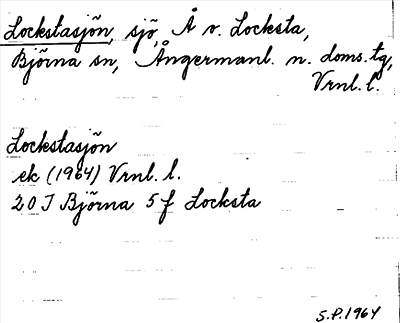 Lockstasjön, sjö, Å v. Locksta,
Björna sn, Ångermanl. n. doms.tg,
Vrnl. l.
Lockstasjön
ek (1964) Vrnl. l.
20 J Björna 5 f Locksta
S.P. 1964